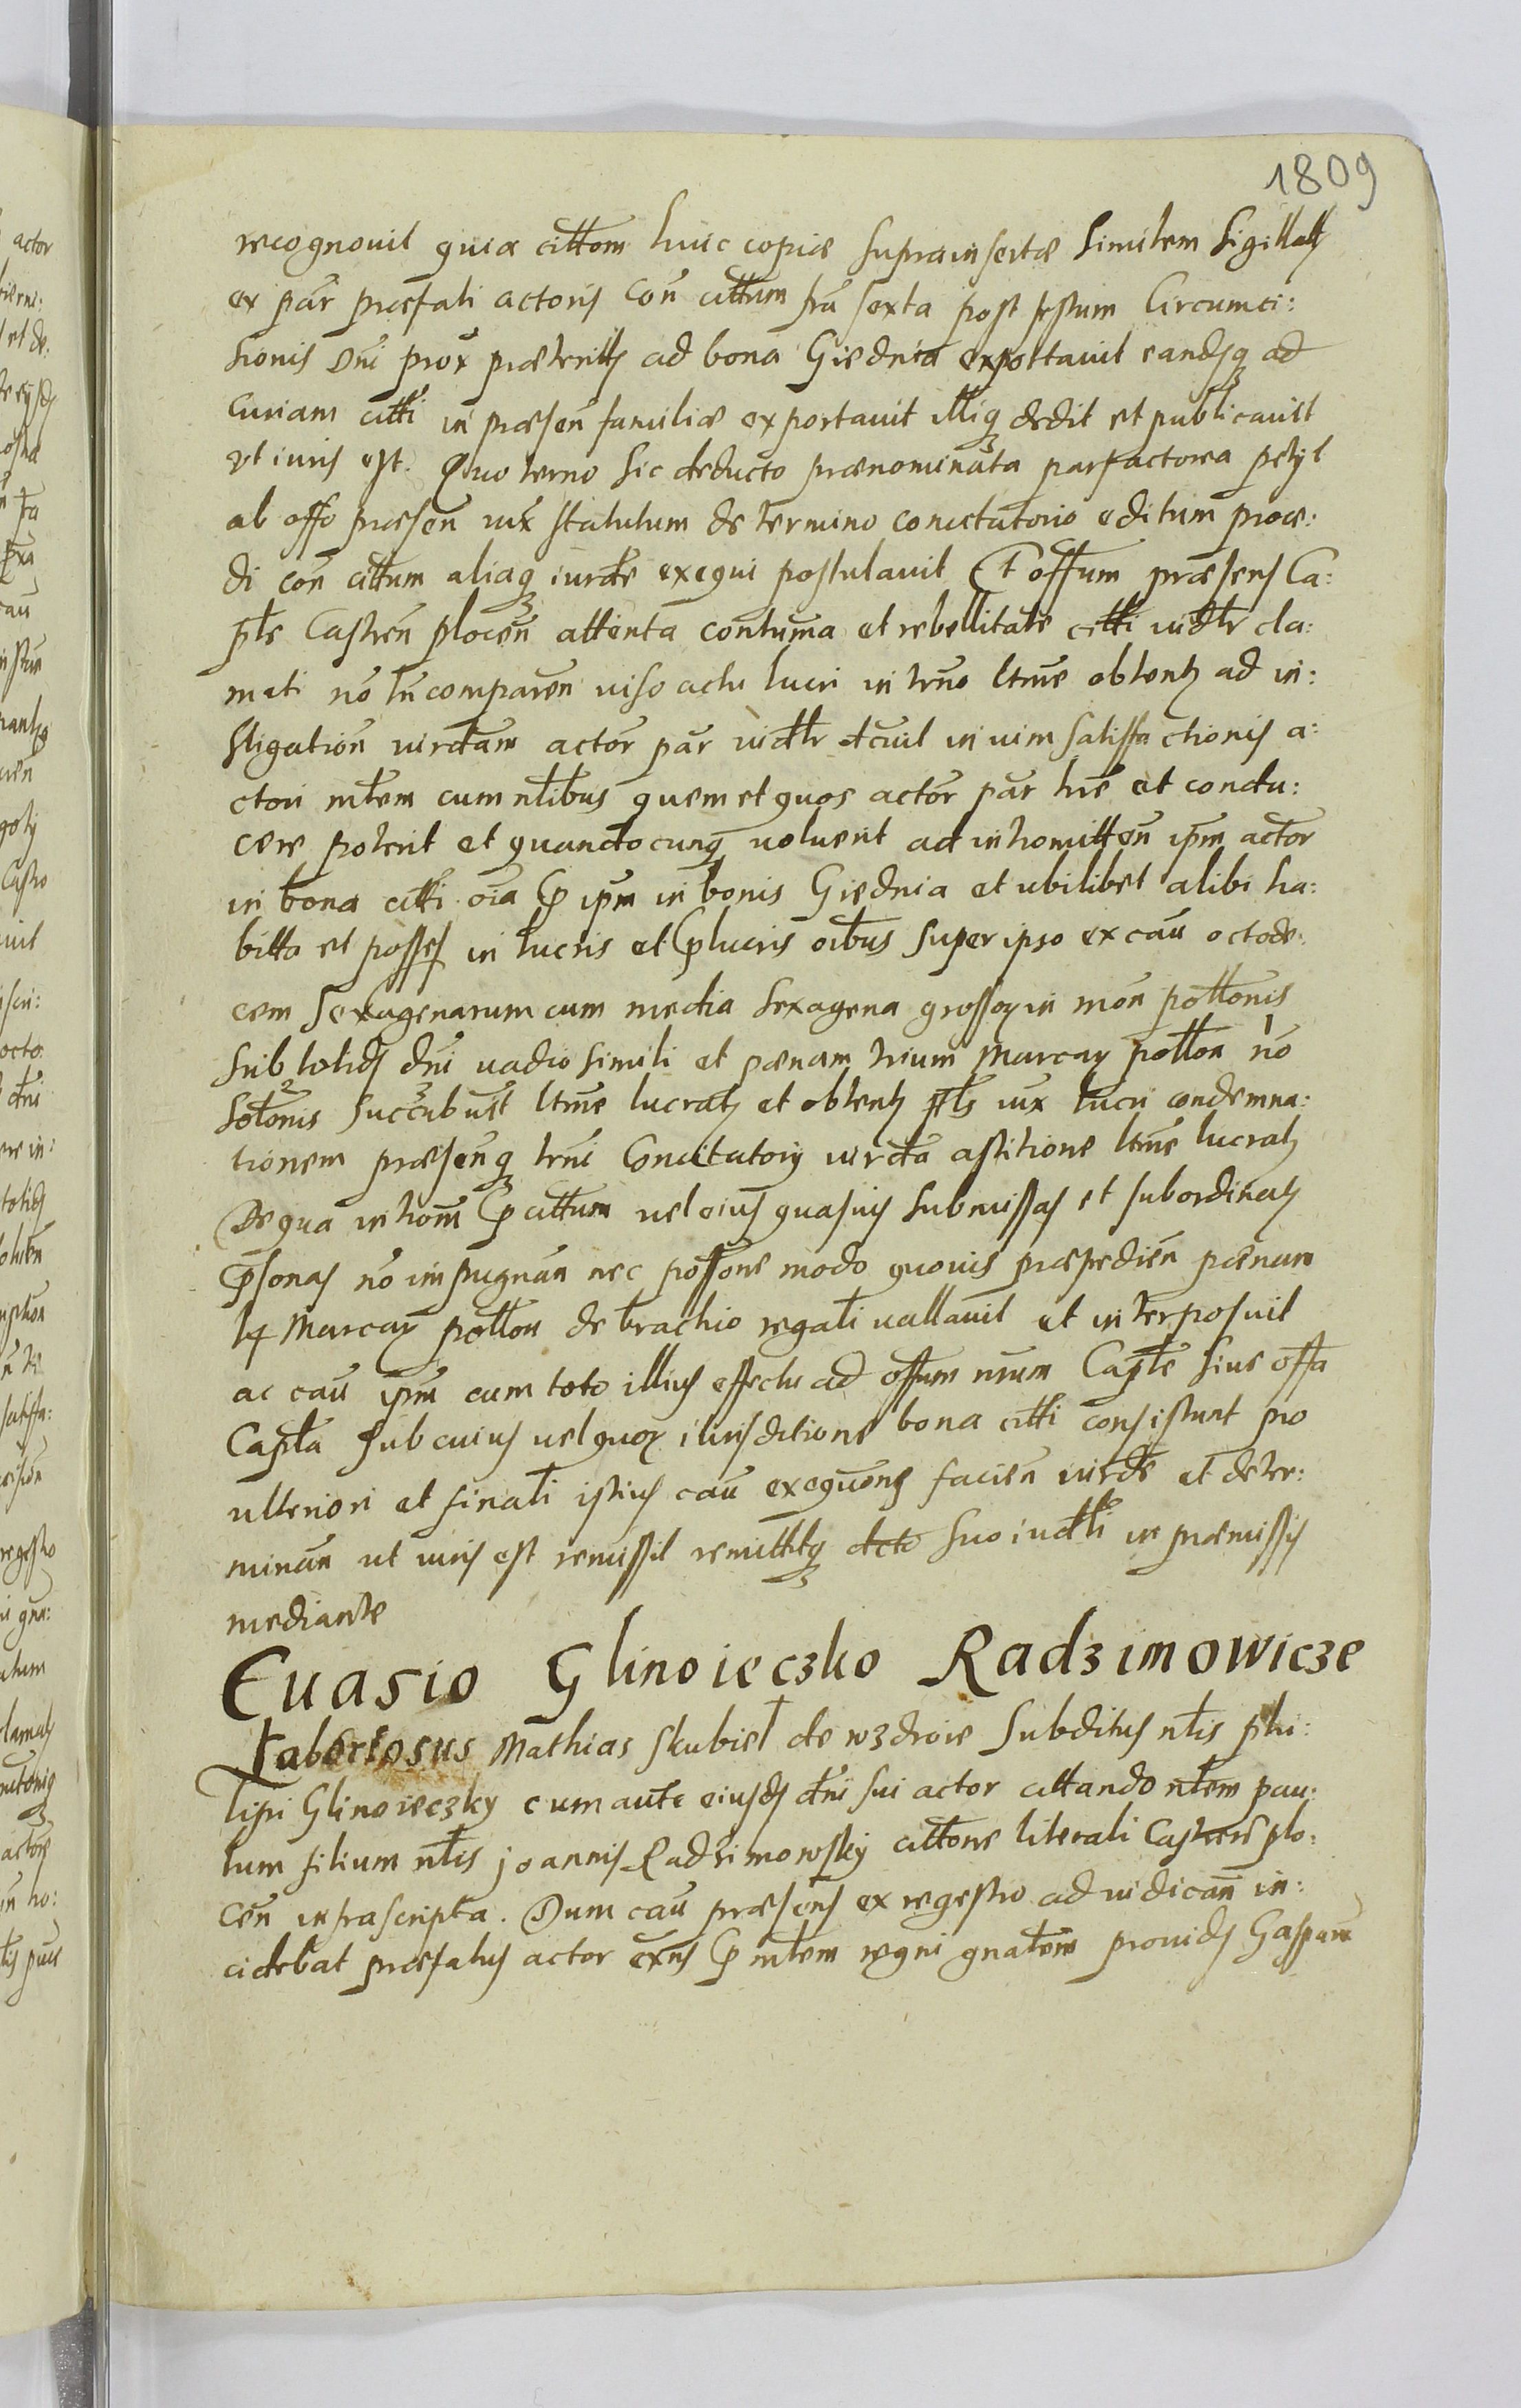 1809
recognouit quia cittõm huic copiæ suprainsertæ similem sigillatã
ex par̃ præfati actoris Con̄ cittum fr̃a sexta post festum Circumci:
sionis Dn̄i prox̃ præteritã ad bona Giednia exportauit eandq̃ ad
Curiam citti in præsen̄ familiæ exportauit illiq3 dedit et publicauit
vt iuris est. Quo termo sic deducto prænominata pars actorea petyt
ab offo præsen̄ iux̃ statutum de termino concitatorio editum proce:
di con̄ cittum aliaq3 iurde exequi postulauit Et offum præsens Ca:
ptle Castren̄ plocen̄ attenta contuma et rebellitate citti videtlr cla:
mati nō tn̄ comparen̄ uiso actu lucri in trñō ltme obtentã ad in:
stigation̄ virdam actor̃ par̃ videtlr decuit in uim satisfactionis a:
ctori mtlem cum ntlibus quem et quos actor̃ par̃ hr̃e et condu:
cere poterit et quandocunq3 uoluerit ad intromitten̄ ipm̄ actor̃
in bona citti oīa p̱ ipm̄ in bonis Giednia et ubilibet alibi ha:
bitta et posses̃ in lucris et p̱lucris oībus super ipso ex cau̇ octode:
cem Sexagenarum cum media sexagena grossoꝝ in mon̄ pottonis
sub totid̃ dn̄i uadio simili et pœnam trium Marcaꝝ potton̄ nō
solōnis succubuit ltme lucratã et obtentã ptls iux̃ lucri condemna:
tionem præsenq3 trñi Concitatorij virda astitione ltme lucratã
De qua introm̄ p̱ cittum uel eius quasuis submissas et subordinatã
p̱sonas nō impugnan̄ nec possone modo quouis præpedien̄ pœnam
14 Marcaꝝ potton̄ de brachio regali uallauit et interposuit
ac cau̇ ipm̄ cum toto illius effectu ad offum nr̃um Captle siue offa
Captla sub cuius uel quoꝝ iurisditione bona citti consistunt pro
ulteriori et finali istius cau̇ exequōng facien̄ iurde et deter:
minan̄ ut iuris est remissit remittitq3 dcto suo iudtli in præmissis
mediante
Euasio Glinoieczko Radzimowicze
Laboriosus Mathias Skubiel de wzdroie subditus ntlis phi:
lipi Glinoieczky cum auttẽ eiusd̃ dn̄i sui actor cittando ntlem pau:
lum filium ntlis joannis Radzimowsky cittone literali Castren̄ plo:
cen̄ infrascripta. Dum cau̇ præsens ex regestro ad iudican̄ in:
cidebat præfatus actor exn̄s p̱ mtlem regni gn̄alem prouid̃ Gasparẽ